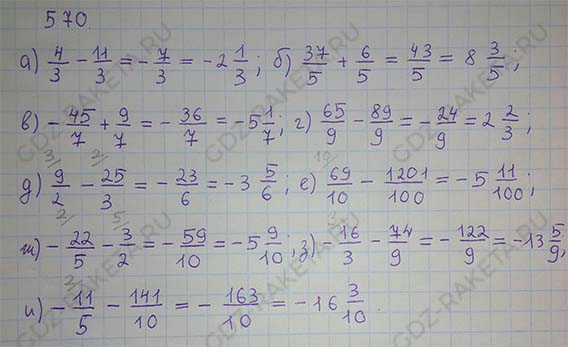 570.
а) 4/3 - 11/3 = - 7/3 = -2 1/3; б) 37/5 + 6/5 = 43/5 = 8 3/5;
в) - 45/7 + 9/7 = - 36/7 = -5 1/7; г) 65/9 - 89/9 = - 24/9 = 2 2/3;
д) 9/2 - 25/3 = - 23/6 = -3 5/6; е) 69/10 - 1201/100 = -5 11/100;
ж) - 22/5 - 3/2 = - 59/10 = -5 9/10; з) - 16/3 - 74/9 = - 122/9 = -13 5/9,
и) - 11/5 - 141/10 = - 163/10 = -16 3/10.
GDZ-RAKETA.RU